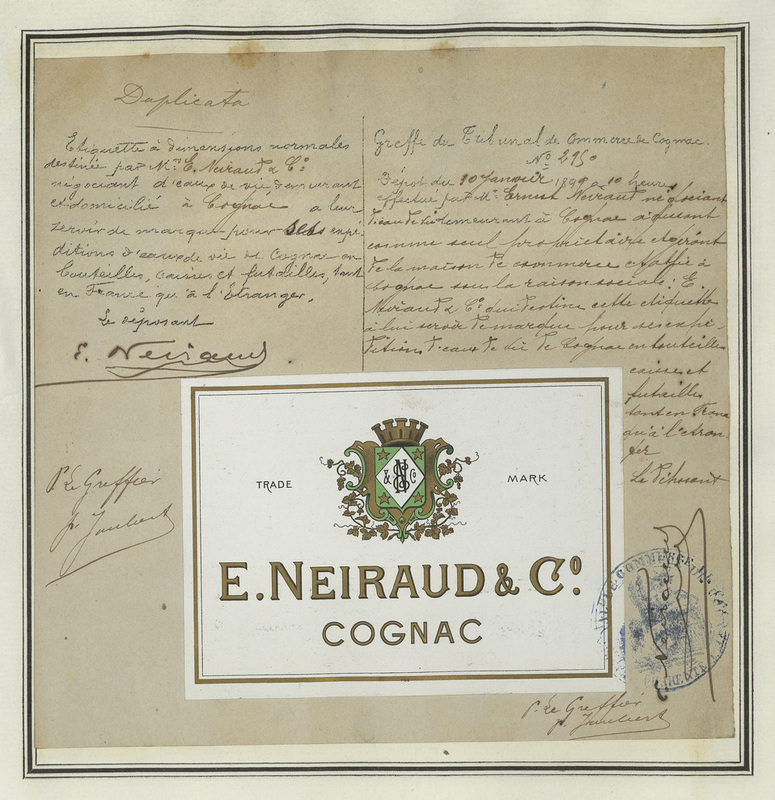 Duplicata
Etiquette à dimensions normales
destinée par Mr. E. Neiraud & Co.
négociant d'eaux de vie demeurant
et domicilié à Cognac à leur
servir de marque pour ses expé
ditions d'eaux de vie de Cognac en
bouteilles, caisses et futailles, tant
en France qu'à l'Etranger.
Le déposant
E. Neiraud
P. Le Greffier
p. Joubert
Greffe du Tribunal de Commerce de Cognac.
No.
Dépôt du 10 Janvier 1899 10 heures
effectué par Mr. Ernest Neiraud négociant
d'eau de vie demeurant à Cognac agissant
comme seul propriétaire et gérant
de la maison de commerce établie à
Cognac sous la raison sociale: E.
Neiraud & Co. qui destine cette étiquette
à lui servir de marque pour ses expé
ditions d'eaux de vie de Cognac en bouteilles
caisses et
futailles
tant en France
qu'à l'étran
ger
Le Déposant
E. Neiraud
TRADE
MARK
N & Co
E. NEIRAUD & Co.
COGNAC
P. Le Greffier
p. Joubert